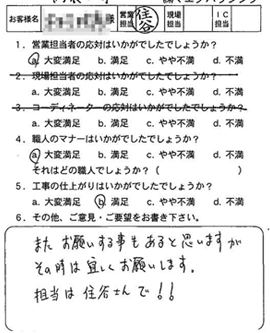 お客様名 営業担当 住谷 現場担当 ＩＣ担当
1．営業担当者の応対はいかがでしたでしょうか？
a. 大変満足 b. 満足 c. やや不満 d. 不満
2．現場担当者の応対はいかがでしたでしょうか？
a. 大変満足 b. 満足 c. やや不満 d. 不満
3．コーディネーターの応対はいかがでしたでしょうか？
a. 大変満足 b. 満足 c. やや不満 d. 不満
4．職人のマナーはいかがでしたでしょうか？
a. 大変満足 b. 満足 c. やや不満 d. 不満
それはどの職人でしょうか？（ ）
5．工事の仕上がりはいかがでしたでしょうか？
a. 大変満足 b. 満足 c. やや不満 d. 不満
6．その他、ご意見・ご要望をお書き下さい。
また お願いする事も あると思いますが
その時は 宜しくお願いします。
担当は 住谷さんで!!